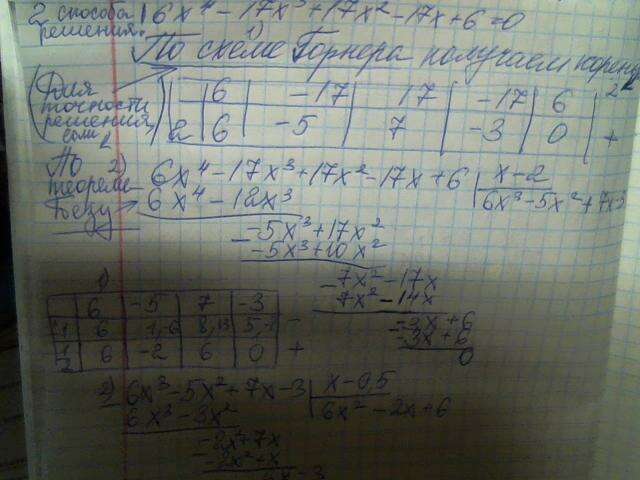 2 способа 6x⁴ - 17x³ + 17x² - 17x + 6 = 0
решения:
1)
По схеме Горнера получаем корень
(Для точности решения, сами)
6 | -17 | 17 | -17 | 6
2 | 6 | -5 | 7 | -3 | 0 | +
По теореме Безу
2) 6x⁴ - 17x³ + 17x² - 17x + 6 | x - 2
6x⁴ - 12x³ | 6x³ - 5x² + 7x
-5x³ + 17x²
-5x³ + 10x²
7x² - 17x
7x² - 14x
-3x + 6
-3x + 6
0
1)
6 | -5 | 7 | -3
6 | 8, | 5, | -
1/2 | 6 | -2 | 6 | 0 | +
2) 6x³ - 5x² + 7x - 3 | x - 0,5
6x³ - 3x² | 6x² - 2x + 6
-2x² + 7x
-2x² + x